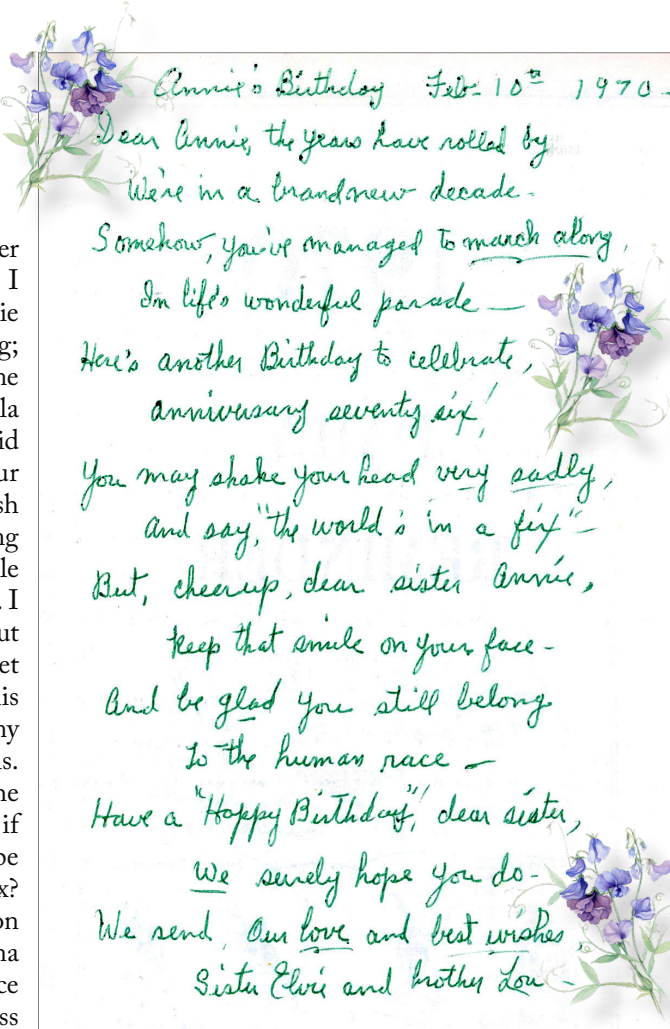 Annie's Birthday Feb- 10th 1970-
Dear Annie, the years have rolled by
We're in a brandnew decade-
Somehow, you've managed to march along,
In life's wonderful parade —
Here's another Birthday to celebrate,
anniversary seventy six!
You may shake your head very sadly,
And say, "the world's in a fix"—
But, cheerup, dear sister Annie,
Keep that smile on your face-
And be glad you still belong
To the human race —
Have a "Happy Birthday"! dear sister,
We surely hope you do-
We send, Our love and best wishes,
Sister Elvie and brother Lou-